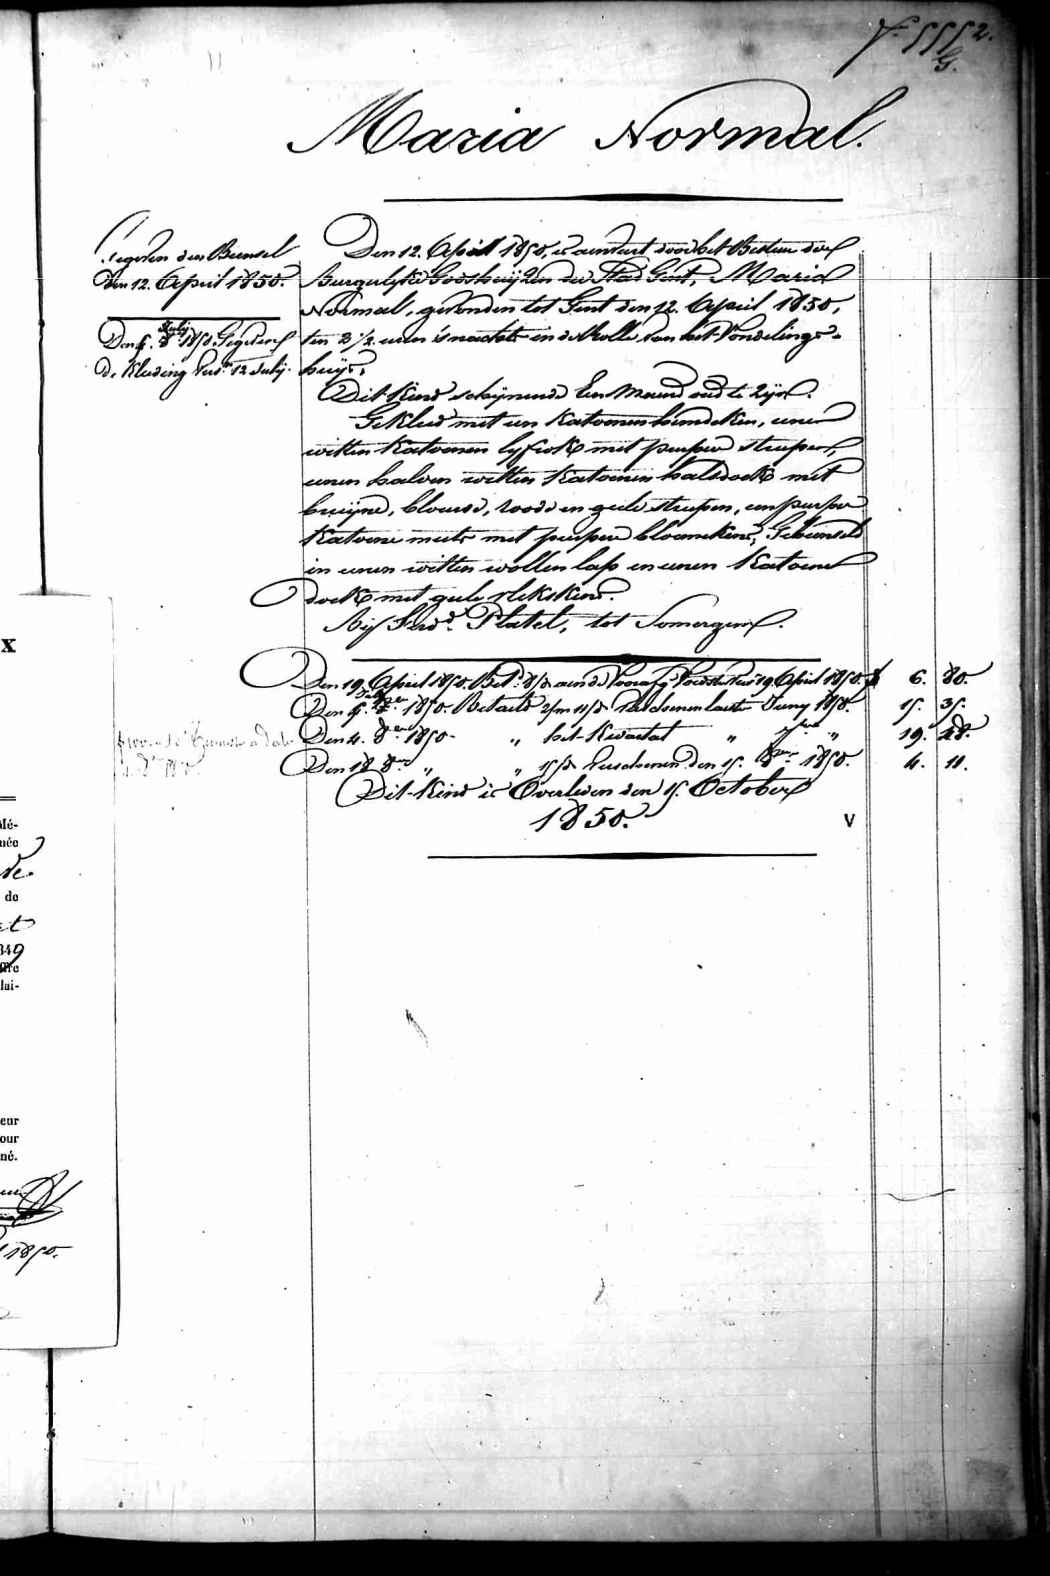 5552.
G.
Maria Normal.
Gegeven den Bunsel
den 12. April 1850.
July
1850. Gegeven
de Kleeding Vers. 12 July.
Den 12. April 1850, is aenveert door het Bestier der
Burgerlyke Godshuijzen der Stad Gent, Maria
Normal, gevonden tot Gent den 12. April 1850,
ten 3 1/2 uren 's nachts in de Rolle van het Vondelings-
huijs,
Dit Kind schijnende Een Maend oud te zijn.
Gekleed met een Katoenen hemdeken, eenen
witten Katoenen lyfrok met purper streepen,
eenen halven witten Katoenen halsdoek met
bruijne, blouwe, roode en gele streepen, een purper
Katoene muts met purper bloemekens, Gebunseld
in eenen witten wollen lap en eenen Katoenen
doek met gele plekskens.
Bij Ferd. Platel, tot Somergem.
Den 19. April 1850. Bet. aen de Voedster 19. April 1850. 6. 80.
July
Den 5. 1850. Betaeld Verschenen laeste Juny 1850. 15. 35.
Den 4. 8ber 1850 „ het Kwartaal „ 7ber „ 19. 28.
Den 18 8ber „ „ Verschenen den 15. 8ber 1850. 4. 11.
Dit Kind is Overleden den 15. October
1850.
V
x
Mé-
née
de
de
1849
lai-
eur
our
né.
1850.